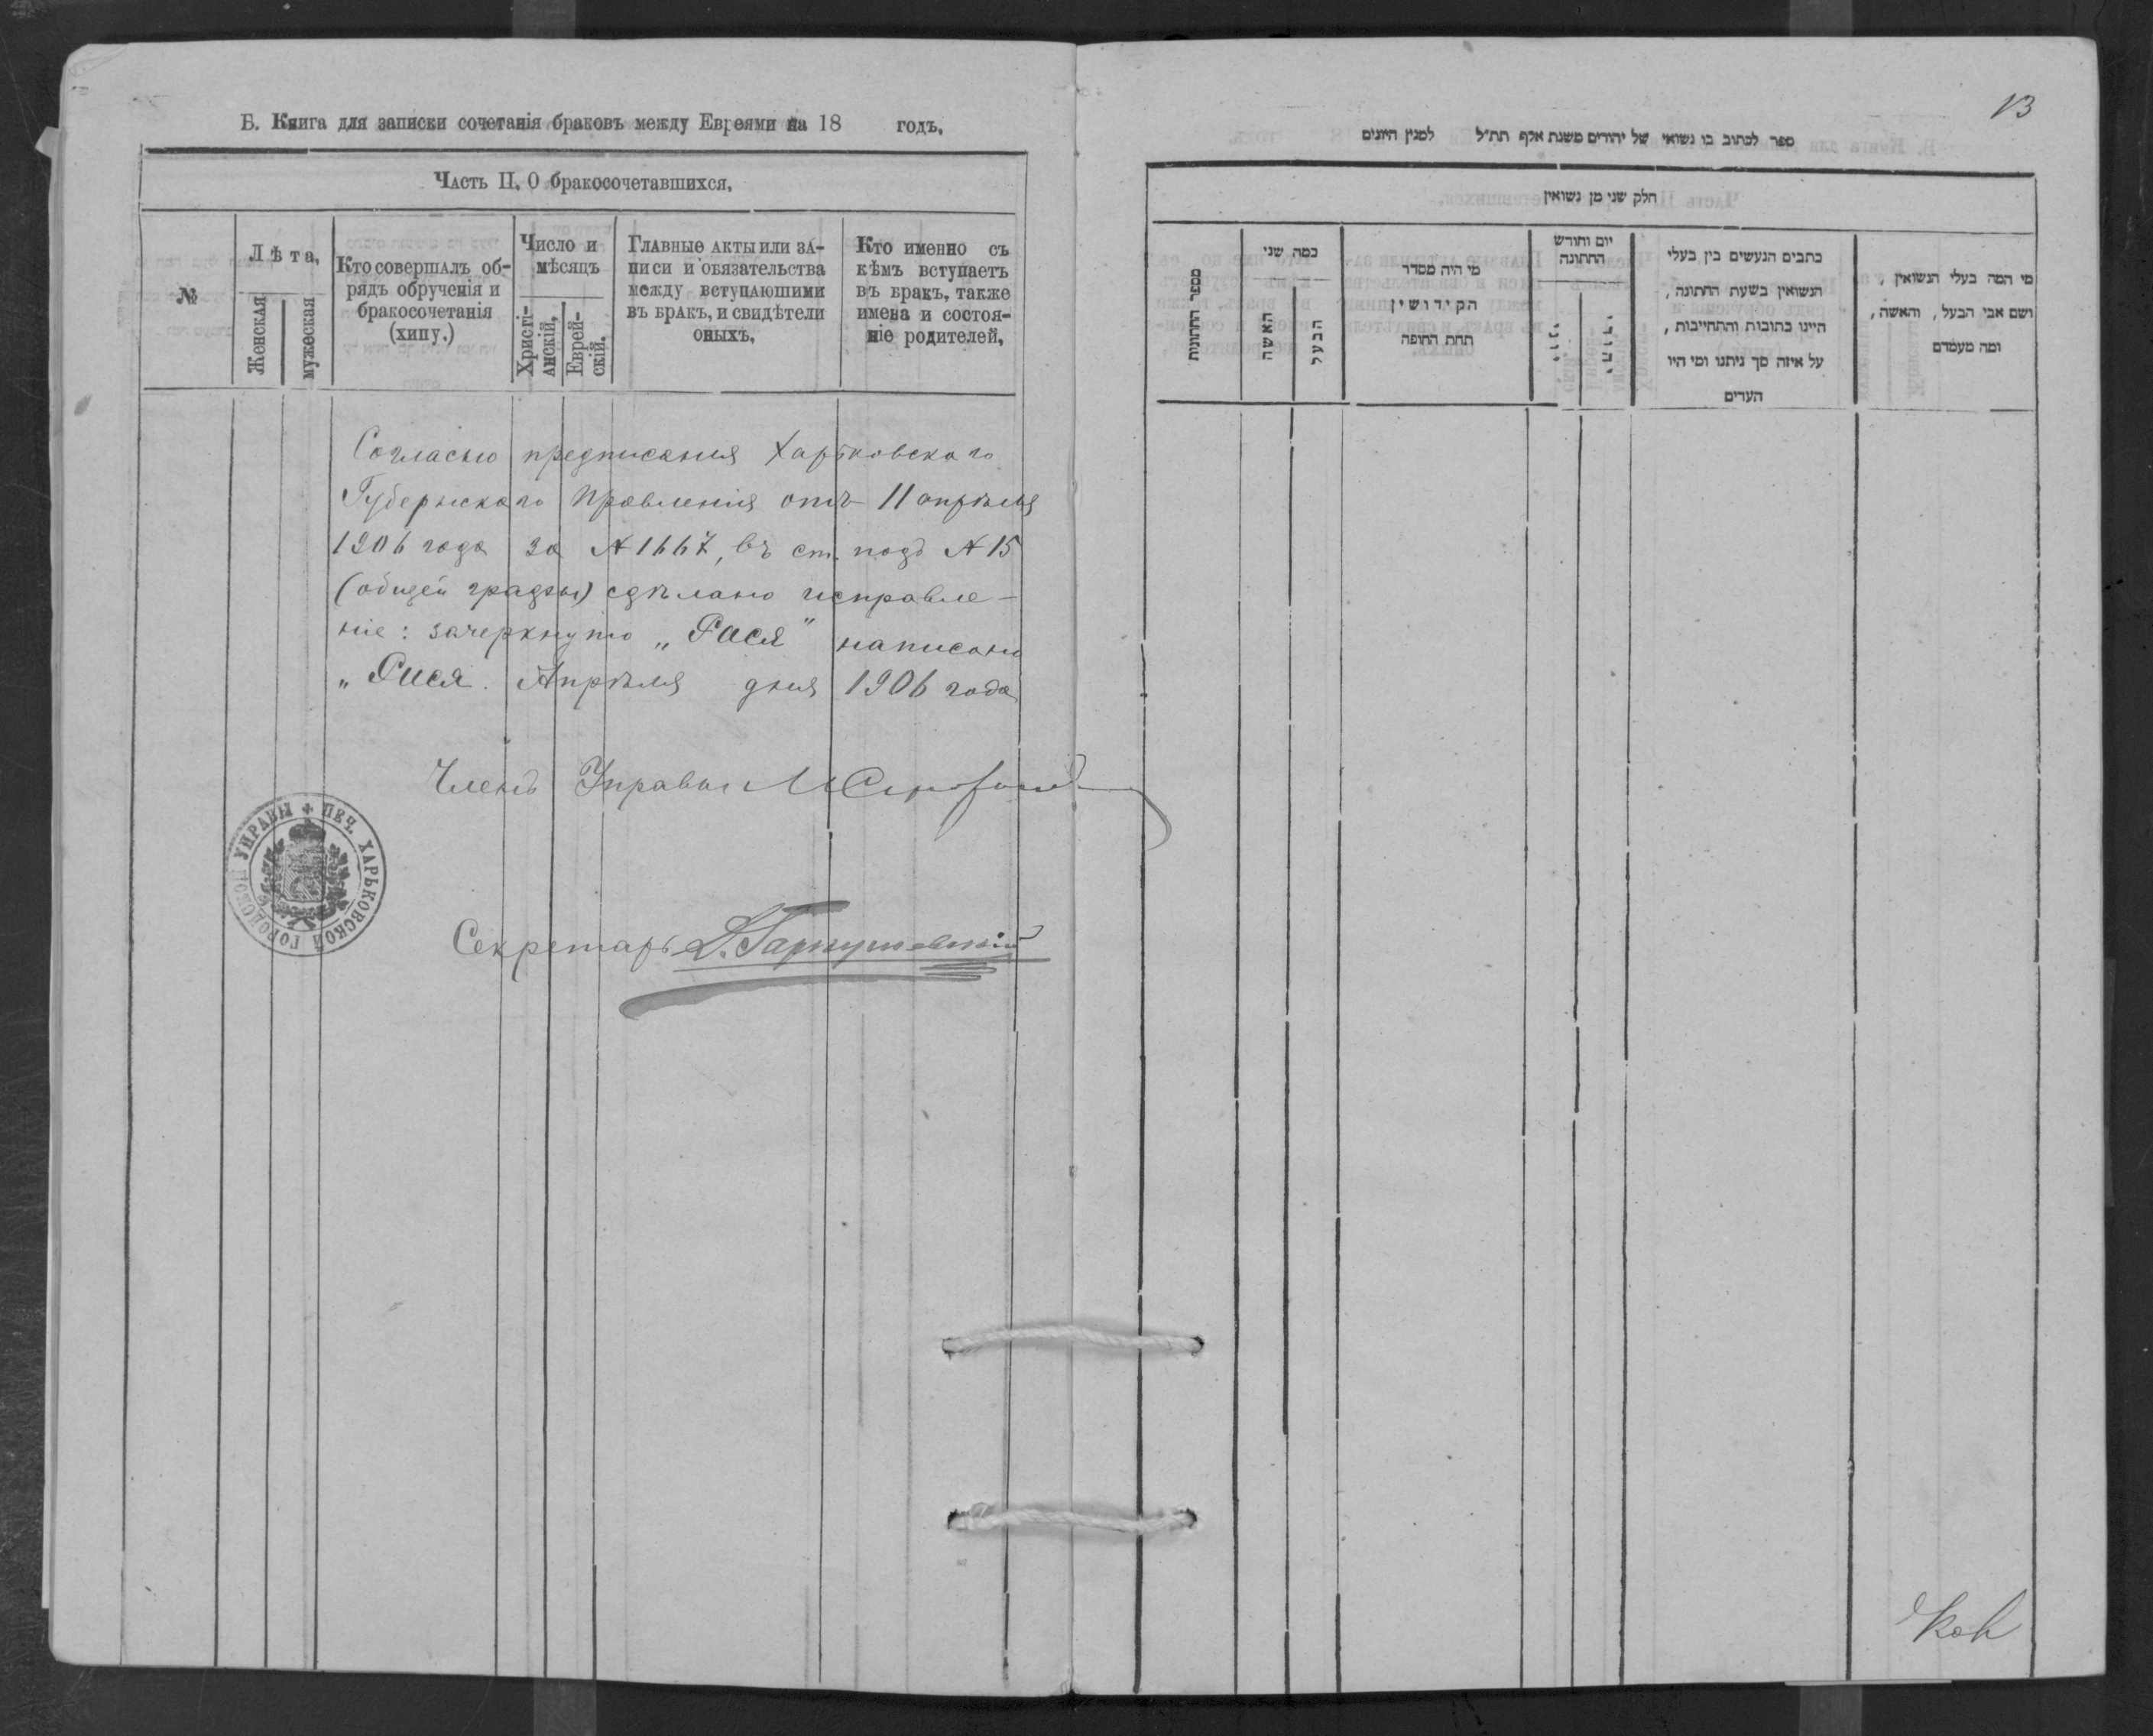 Б. Книга для записки сочетанія браковъ между Евреями на 18 годъ,
Часть II, О бракосочетавшихся,
№
Лѣта,
Женская
мужеская
Кто совершалъ об-
рядъ обрученія и
бракосочетанія
(хипу.)
Число и
мѣсяцъ
Христі-
анскій,
Еврей-
скій.
Главные акты или за-
писи и обязательства
между вступающими
въ бракъ, и свидѣтели
оныхъ,
Кто именно съ
кѣмъ вступаетъ
въ бракъ, также
имена и состоя-
ніе родителей,
Согласно предписанія Харьковскаго
Губернскаго Правленія отъ 11 апрѣля
1906 года за № 1667, въ ст. подъ № 15
(общей графы) сдѣлано исправле-
ніе: зачеркнуто „Рася" написано
„Рися. Апрѣля дня 1906 года
Членъ Управы
Секретарь
ПЕЧ. ХАРЬКОВСКОЙ ГОРОДСКОЙ УПРАВЫ
13
ספר לכתוב בו נשואי של יהודים משנת אלף תת״ל למנין היונים
חלק שני מן נשואין
מספר החתונות
כמה שני
האשה
הבעל
מי היה מסדר
הקידושין
תחת החופה
יום וחורש
החתונה
יוני
יהודי
כתבים הנעשים בין בעלי
הנשואין בשעת החתונה,
היינו כתובות והתחייבות,
על איזה סך ניתנו ומי היו
העדים
מי המה בעלי הנשואין,
ושם אבי הבעל, והאשה,
ומה מעמדם